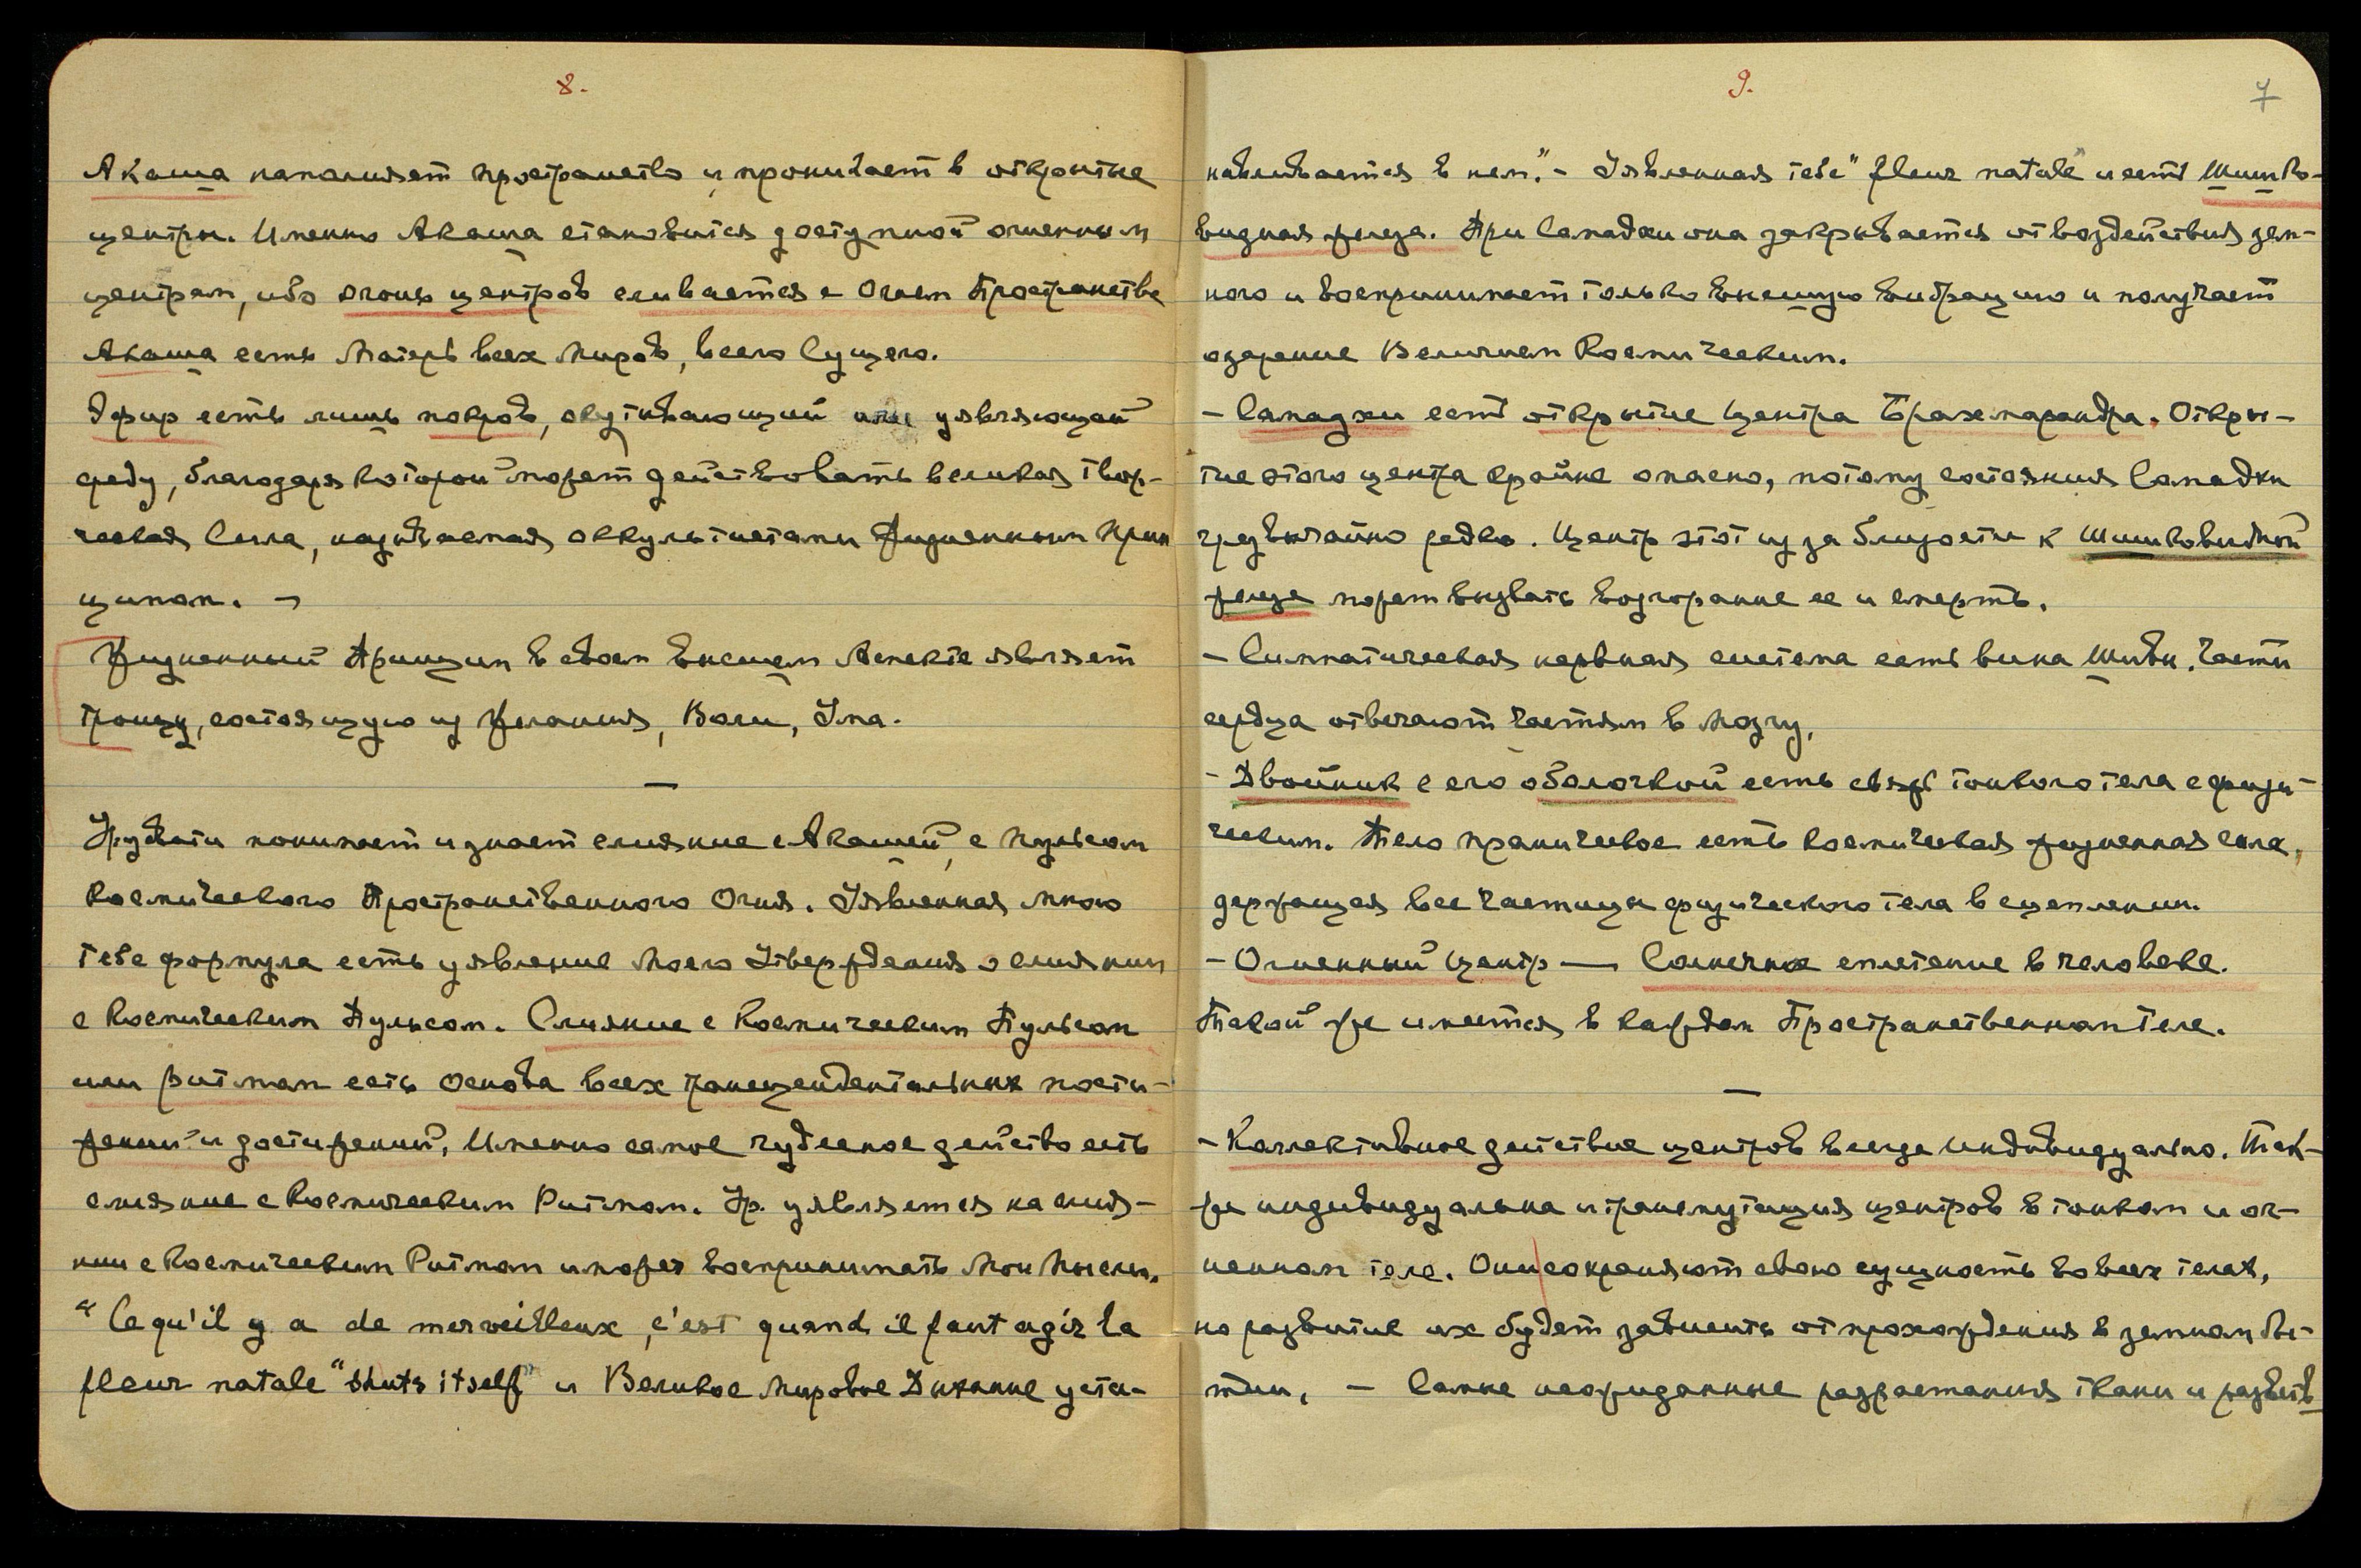 8.
Акаша наполняет пространство и проникает в открытые
центры. Именно Акаша становится доступной огненным
центрам, ибо огонь центров сливается с Огнем Пространства
Акаша есть Матерь всех Миров, всего Сущего.
Эфир есть лишь покров, окутывающий или уявляющий
среду, благодаря которой может действовать великая твор-
ческая Сила, называемая оккультистами Жизненным Прин
ципом. –
Жизненный Принцип в своем внешнем Аспекте являет
троицу, состоящую из Желания, Воли, Ума.
—
Урусвати понимает и знает слияние с Акашей, с пульсом
Космического Пространственного Огня. Уявленная Мною
тебе формула есть уявление Моего Утверждения о слиянии
с Космическим Пульсом. Слияние с Космическим Пульсом
или ритмом есть основа всех трансцендентальных пости-
жений и достижений, Именно самое чудесное действо есть
слияние с Космическим Ритмом. Ур. уявляется на слия-
нии с Космическим Ритмом и может воспринимать Мои Мысли.
"Ce qu'il y a de merveilleux, c'est quand il faut agir la
fleur natale "shuts itself" и Великое Мировое Дыхание уста-
9.
7
навливается в нем." – Уявленная тебе "fleur natale" и есть Шишко-
видная железа. При Самадхи она закрывается от воздействия зем-
ного и воспринимает только внешнюю вибрацию и получает
озарение Величием Космическим.
– Самадхи есть открытие Центра Брахмарандра. Откры-
тие этого центра крайне опасно, потому состояния Самадхи
чрезвычайно редко. Центр этот из за близости к Шишковидной
железе может вызвать возгорание ее и смерть.
– Симпатическая нервная система есть вина Шивы. Части
сердца отвечают частям в Мозгу,
– Двойник с его оболочкой есть связь тонкого тела с физи-
ческим. Тело праническое есть космическая жизненная сила,
держащая все частицы физического тела в сцеплении.
– Огненный Центр — Солнечное сплетение в человеке.
Такой же имеется в каждом Пространственном Теле.
—
– Коллективное действие центров всегда индивидуально. Так-
же индивидуальна и трансмутация центров в тонком и ог-
ненном теле. Они сохраняют свою сущность во всех телах,
но развитие их будет зависеть от прохождения в земном бы-
тии, – Самые неожиданные разрастания ткани и развитв